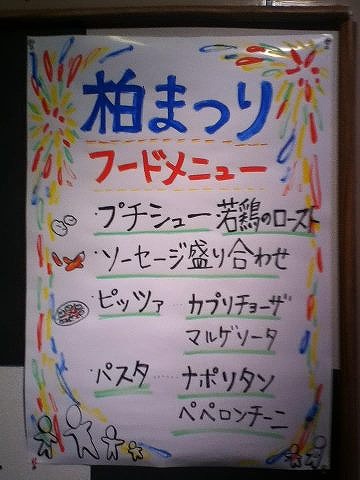 柏まつり
フードメニュー
・プチシュー 若鶏のロースト
・ソーセージ盛り合わせ
・ピッツァ……カプリチョーザ
マルゲリータ
・パスタ……ナポリタン
ペペロンチーニ